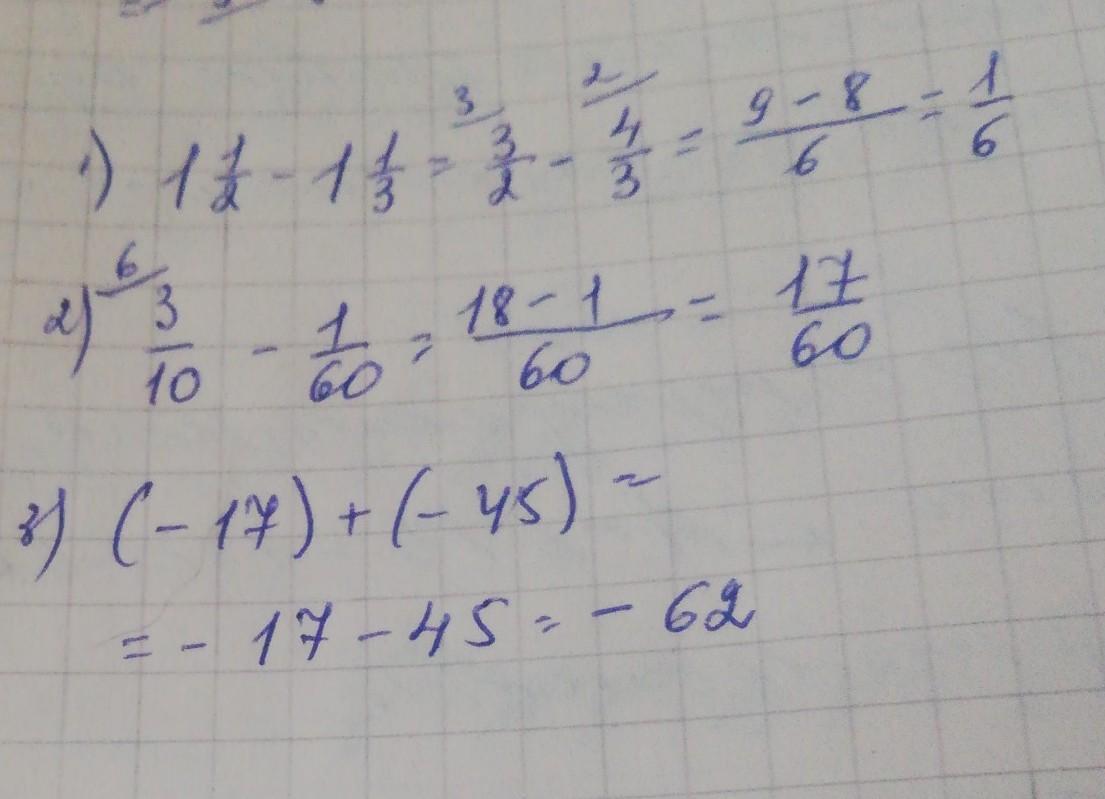 1) 1 1/2 - 1 1/3 = 3/ 3/2 - 2/ 4/3 = (9 - 8)/6 = 1/6
2) 6/ 3/10 - 1/60 = (18 - 1)/60 = 17/60
3) (- 17) + (- 45) =
= - 17 - 45 = - 62